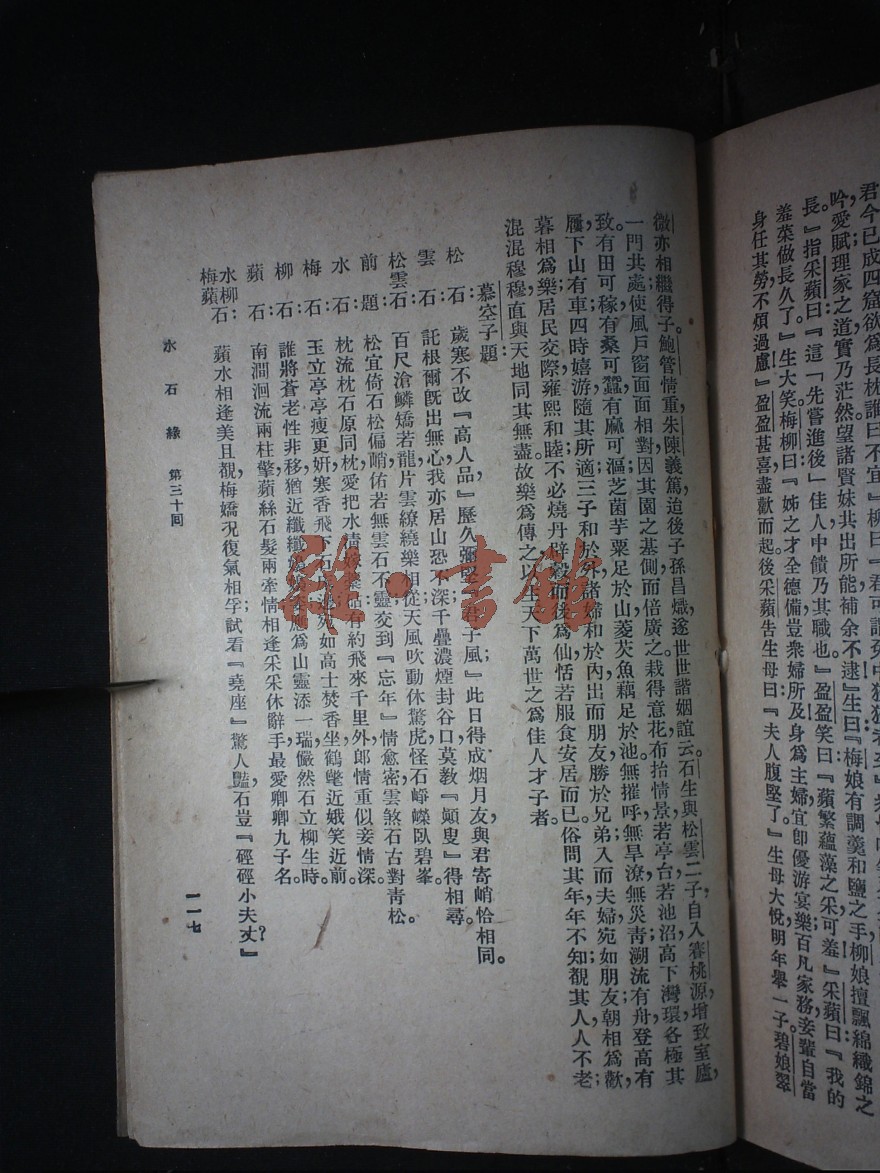 君今已成四窟欲爲長枕
吟愛賦理家之道實乃茫然望諸賢妹共出所能補余不逮』生曰『梅娘有調羹和鹽之手柳娘擅飄綿織錦之
長。』指采蘋曰『這「先嘗進後」佳人中饋乃其職也』盈盈笑曰『蘋繁蘊藻之采可羞』采蘋曰『我的
羞菜做長久了』生大笑梅柳曰『姊之才全德備豈衆婦所及身爲主婦宜卽優游宴樂百凡家務妾輩自當
身任其勞不煩過慮』盈盈甚喜盡歡而起後采蘋告生母曰『夫人腹堅了』生母大悅明年舉一子碧娘翠
微亦相繼得子。鮑管情重朱陳義篤迨後子孫昌熾遂世世諧姻誼云。石生與松雲二子自入蒼桃源增致室廬,
一門共處使風戸窗面面相對因其園之基側而倍廣之栽得意花布拾情景若亭台若池沼高下灣環各極其
致有田可稼有桑可蠶有麻可漚芝菌芋粟足於山菱芡魚藕足於池無摧呼,無旱潦,無災眚;溯流有舟登高有
屨下山有車四時嬉游隨其所適三子和於外諸婦和於內出而朋友勝於兄弟入而夫婦宛如朋友朝相爲歡,
暮相爲樂居民交際雍熙和睦不必燒丹辟穀而後爲仙恬若服食安居而已。俗問其年年不知覩其人人不老;
混混穆穆直與天地同其無盡。故樂爲傳之以告天下萬世之爲佳人才子者。
慕空子題
松 石:歲寒不改『高人品,』歷久彌 君子風;』此日得成烟月友與君寄峭恰相同。
雲 石:託根爾旣出無心我亦居山恐不深千疊濃煙封谷口莫教『顚叟』得相尋。
松雲石:百尺滄鱗矯若龍片雲繚繞樂相從天風吹動休驚虎怪石崢嶸臥碧峯。
前 題:松宜倚石松偏峭佑若無雲石不靈交到『忘年』情愈密雲煞石古對靑松。
水 石:枕流枕石原同枕愛把水淸 有約飛來千里外郞情重似妾情深。
梅 石:玉立亭亭瘦更姸寒香飛下石 宛如高士焚香坐鶴氅近娥笑近前。
柳 石:誰將蒼老性非移猶近纖纖 應爲山靈添一瑞儼然石立柳生時。
蘋 石:南澗洄流兩柱擎蘋絲石髮兩牽情相逢采采休辭手最愛卿卿九子名。
水柳梅蘋石:蘋水相逢美且覩梅嬌況復氣相孚試看『堯座』驚人豔石豈『硜硜小夫丈?』
水石緣 第三十回
一一七
雜·書館